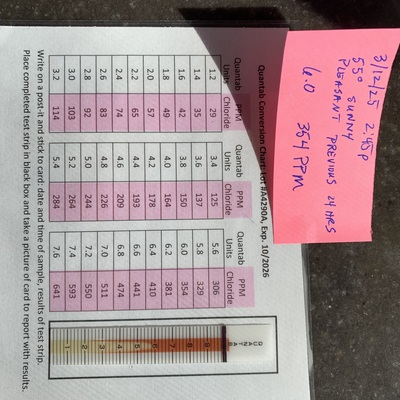 3/12/25 2:45P
55° SUNNY
PLEASANT PREVIOUS 24 HRS
6.0 354 PPM
Quantab Conversion Chart: Lot #A4290A, Exp. 10/2026
Quantab Units PPM Chloride Quantab Units PPM Chloride Quantab Units PPM Chloride
1.2 29 3.4 125 5.6 306
1.4 35 3.6 137 5.8 329
1.6 42 3.8 150 6.0 354
1.8 49 4.0 164 6.2 381
2.0 57 4.2 178 6.4 410
2.2 65 4.4 193 6.6 441
2.4 74 4.6 209 6.8 474
2.6 83 4.8 226 7.0 511
2.8 92 5.0 244 7.2 550
3.0 103 5.2 264 7.4 593
3.2 114 5.4 284 7.6 641
QUANTAB
9
8
7
6
5
4
3
2
1
Write on a post-it and stick to card: date and time of sample, results of test strip.
Place completed test strip in black box and take a picture of card to report with results.